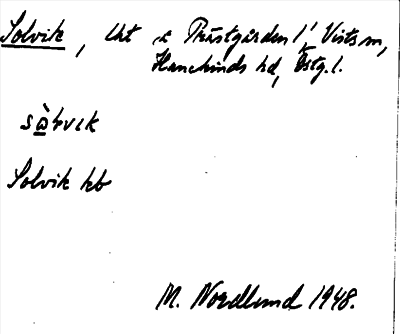 Solvik, lht i Prästgården 1¹ Vists sn,
Hanekinds hd, Östg. l.
sɷ̀ƚvɪk
Solvik kb
M. Nordlund 1948.